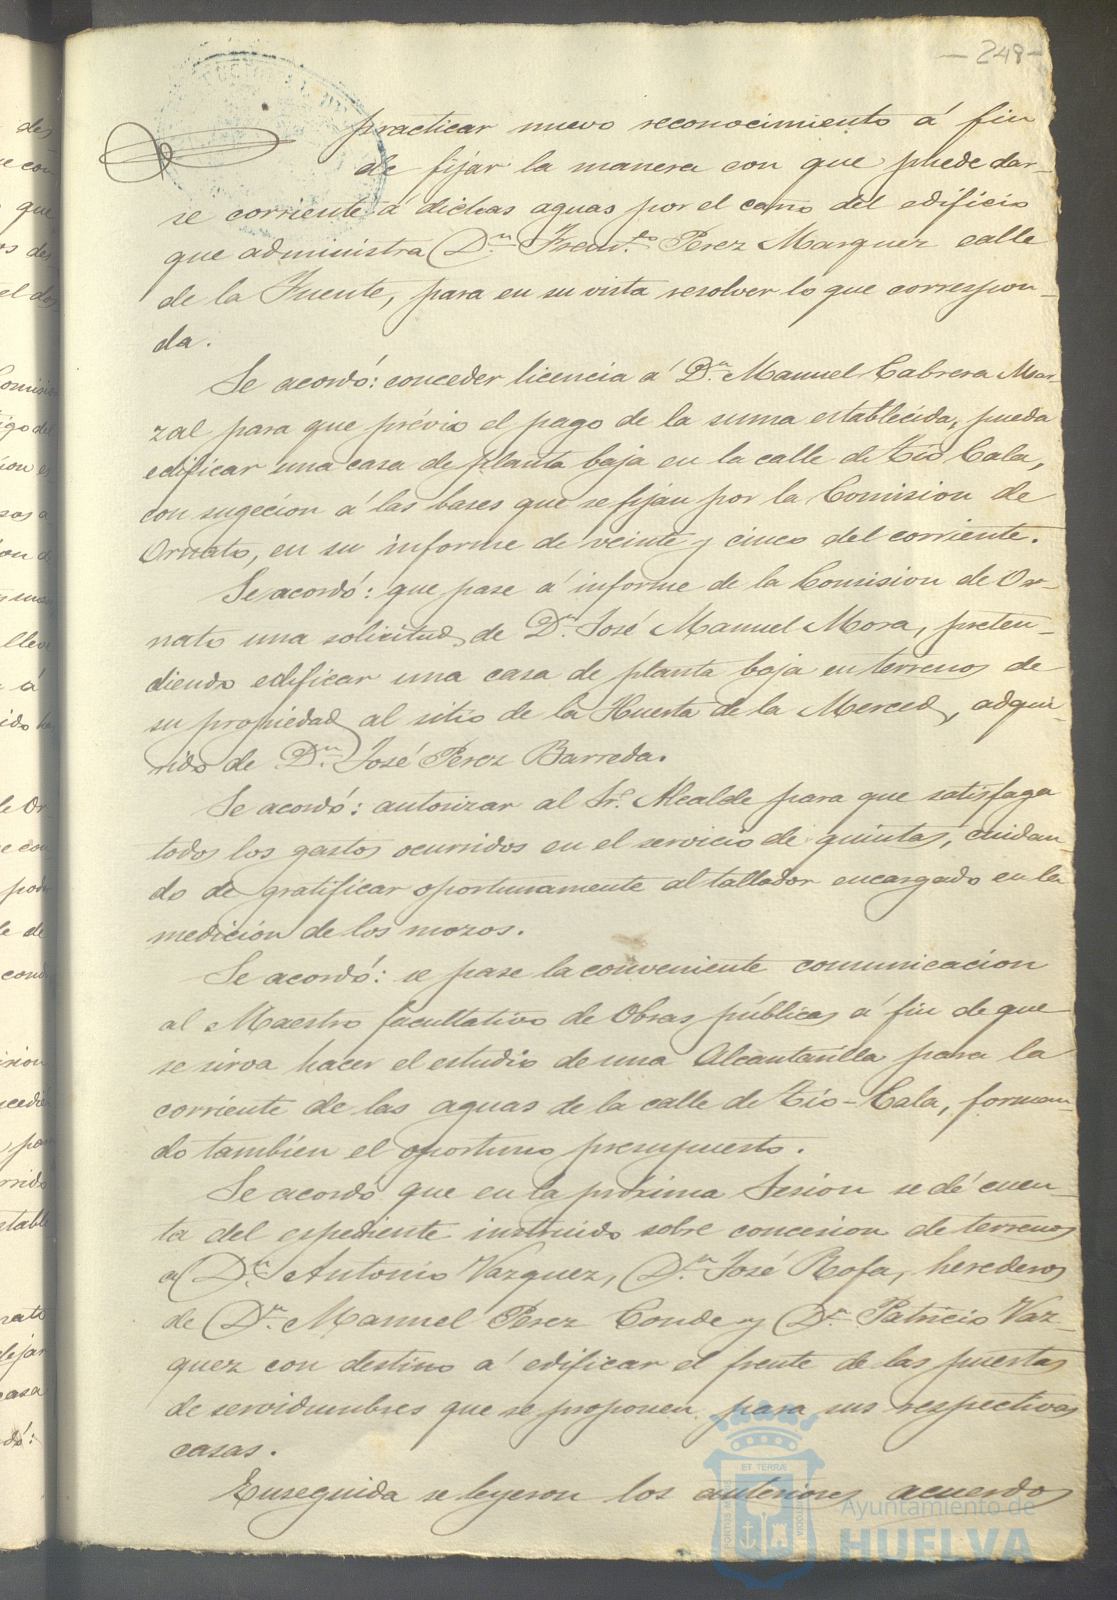 — 248 —
practicar nuevo reconocimiento á fin
de fijar la manera con que puede dar-
se corriente á dichas aguas por el caño del edificio
que administra Dn. Franco. Perez Marquez calle
de la Fuente, para en su vista resolver lo que correspon-
da.
Se acordó: conceder licencia á Dn. Manuel Cabrera Mar-
zal para que prévio el pago de la suma establecida, pueda
edificar una casa de planta baja en la calle de Tio Cala,
con sugecion á las bases que se fijan por la Comision de
Ornato, en su informe de veinte y cinco del corriente.
Se acordó: que pase á informe de la Comision de Or-
nato una solicitud de Dn. José Manuel Mora, preten-
diendo edificar una casa de planta baja en terrenos de
su propiedad al sitio de la Huerta de la Merced, adqui-
rido de Dn. José Perez Barreda.
Se acordó: autorizar al Sr. Alcalde para que satisfaga
todos los gastos ocurridos en el servicio de quintas, cuidan-
do de gratificar oportunamente al tallador encargado en la
medición de los mozos.
Se acordó: se pase la conveniente comunicacion
al Maestro facultativo de Obras públicas á fin de que
se sirva hacer el estudio de una Alcantarilla para la
corriente de las aguas de la calle de Tio-Cala, forman-
do tambien el oportuno presupuesto.
Se acordó que en la próxima Sesion se dé cuen-
ta del espediente instruido sobre concesion de terrenos
a Dn. Antonio Vazquez, Dn. José Rofa, herederos
de Dn. Manuel Perez Conde y Dn. Patricio Vaz-
quez con destino á edificar el frente de las puertas
de servidumbres que se proponen para sus respectivas
casas.
Enseguida se leyeron los anteriores acuerdos
Ayuntamiento de
HUELVA